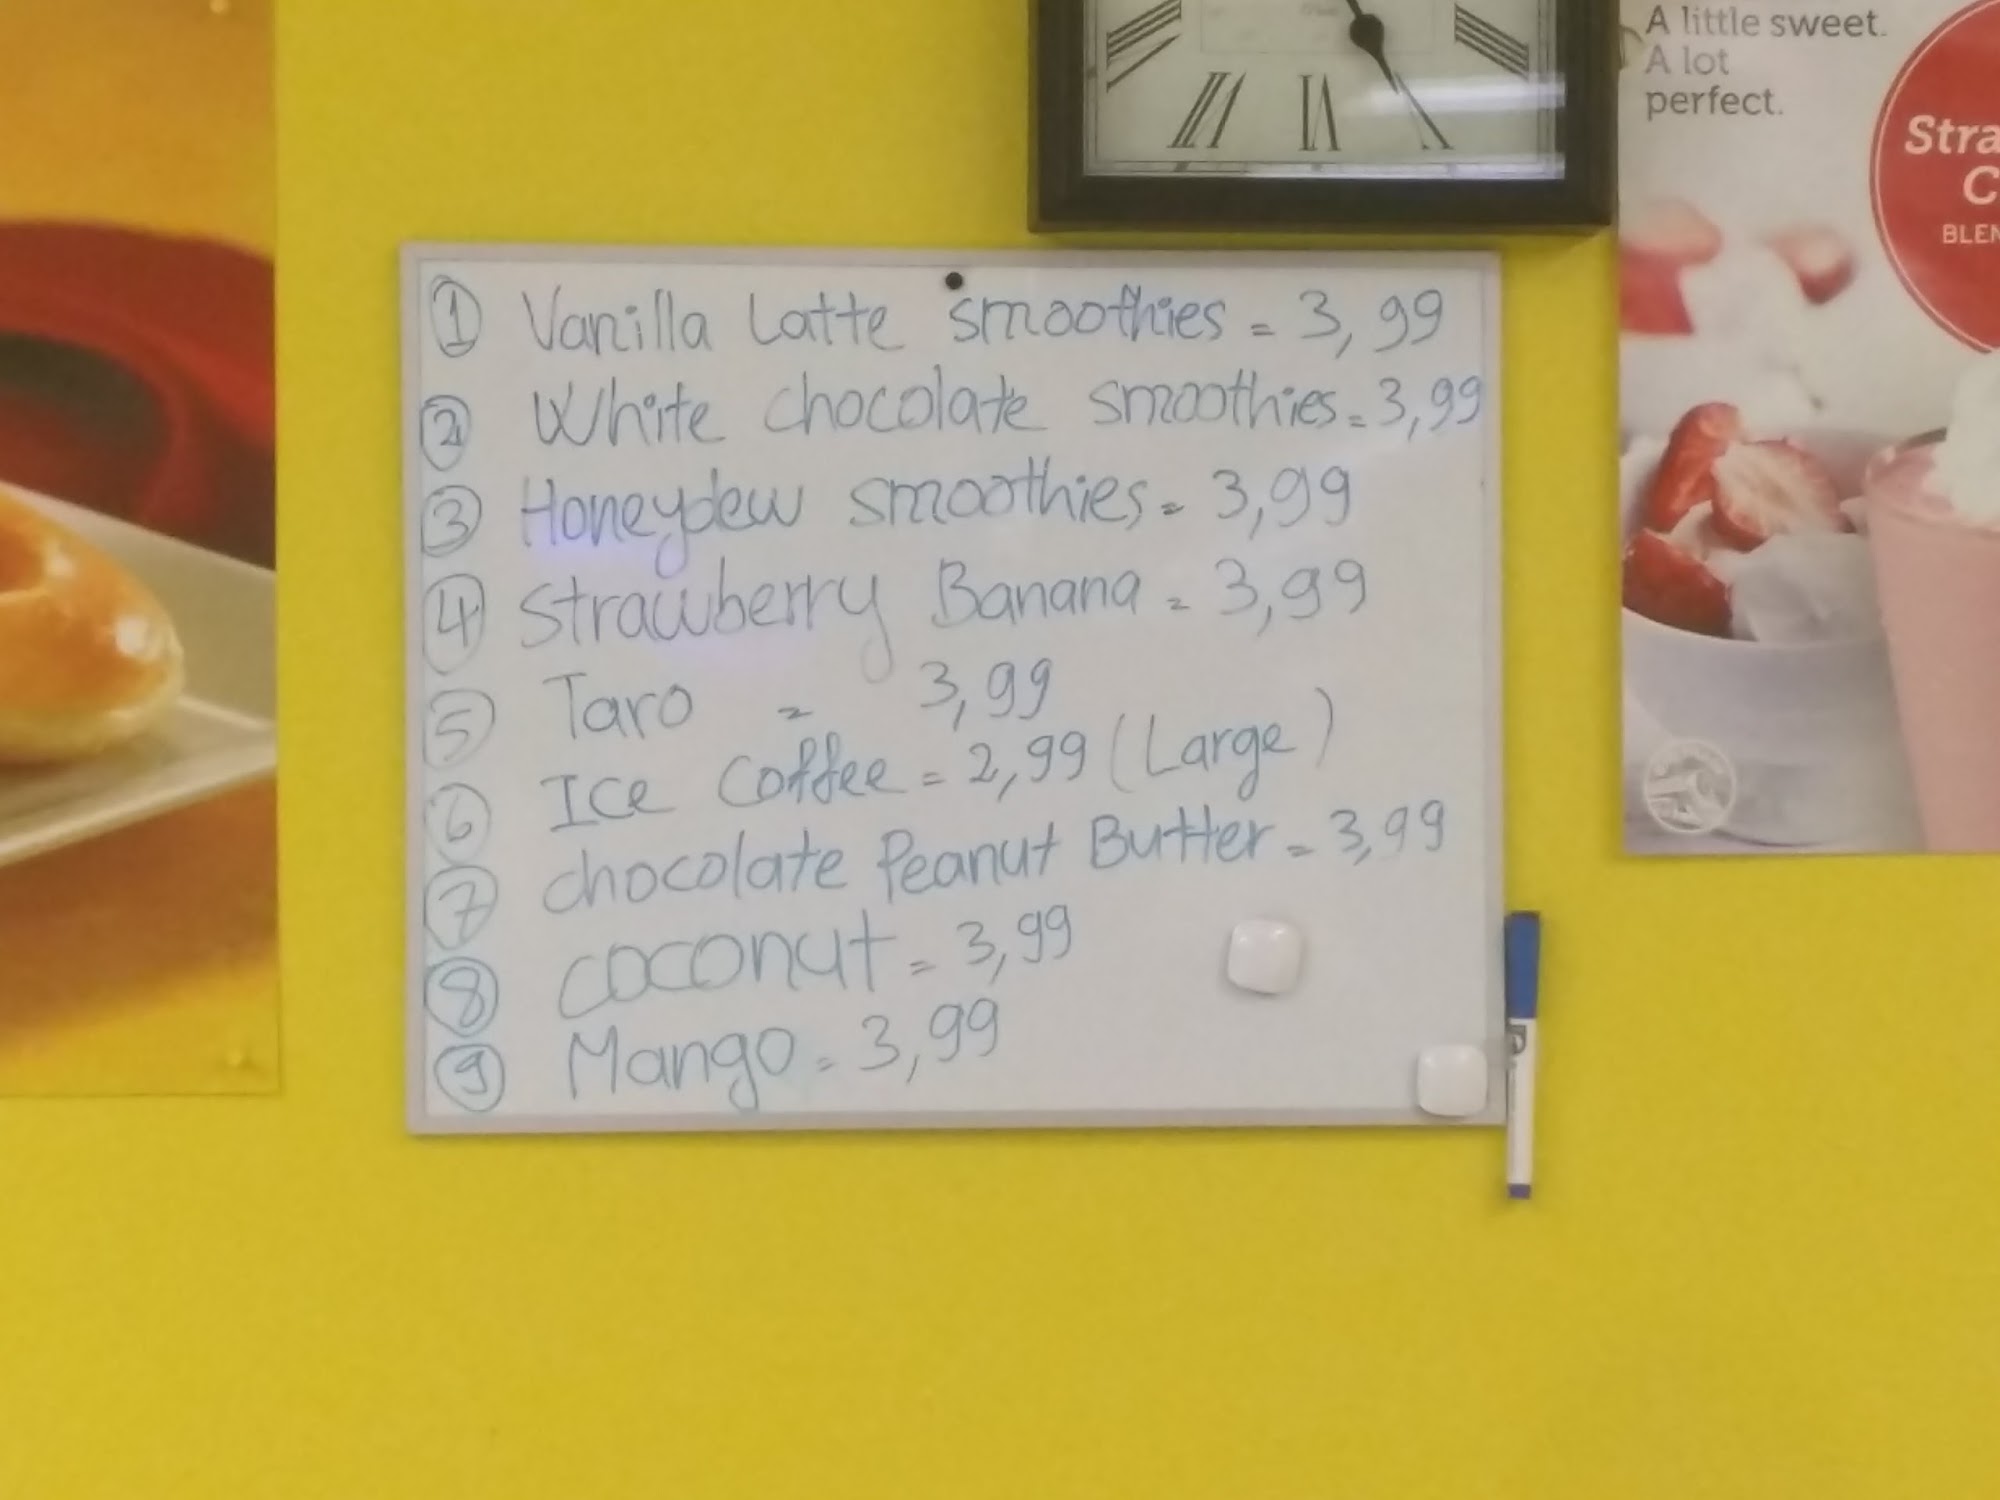 A little sweet.
A lot
perfect.
Stra
C
BLEN
① Vanilla Latte smoothies = 3,99
② White chocolate smoothies = 3,99
③ Honeydew smoothies = 3,99
④ Strawberry Banana = 3,99
⑤ Taro = 3,99
⑥ Ice Coffee = 2,99 (Large)
⑦ chocolate Peanut Butter = 3,99
⑧ coconut = 3,99
⑨ Mango = 3,99